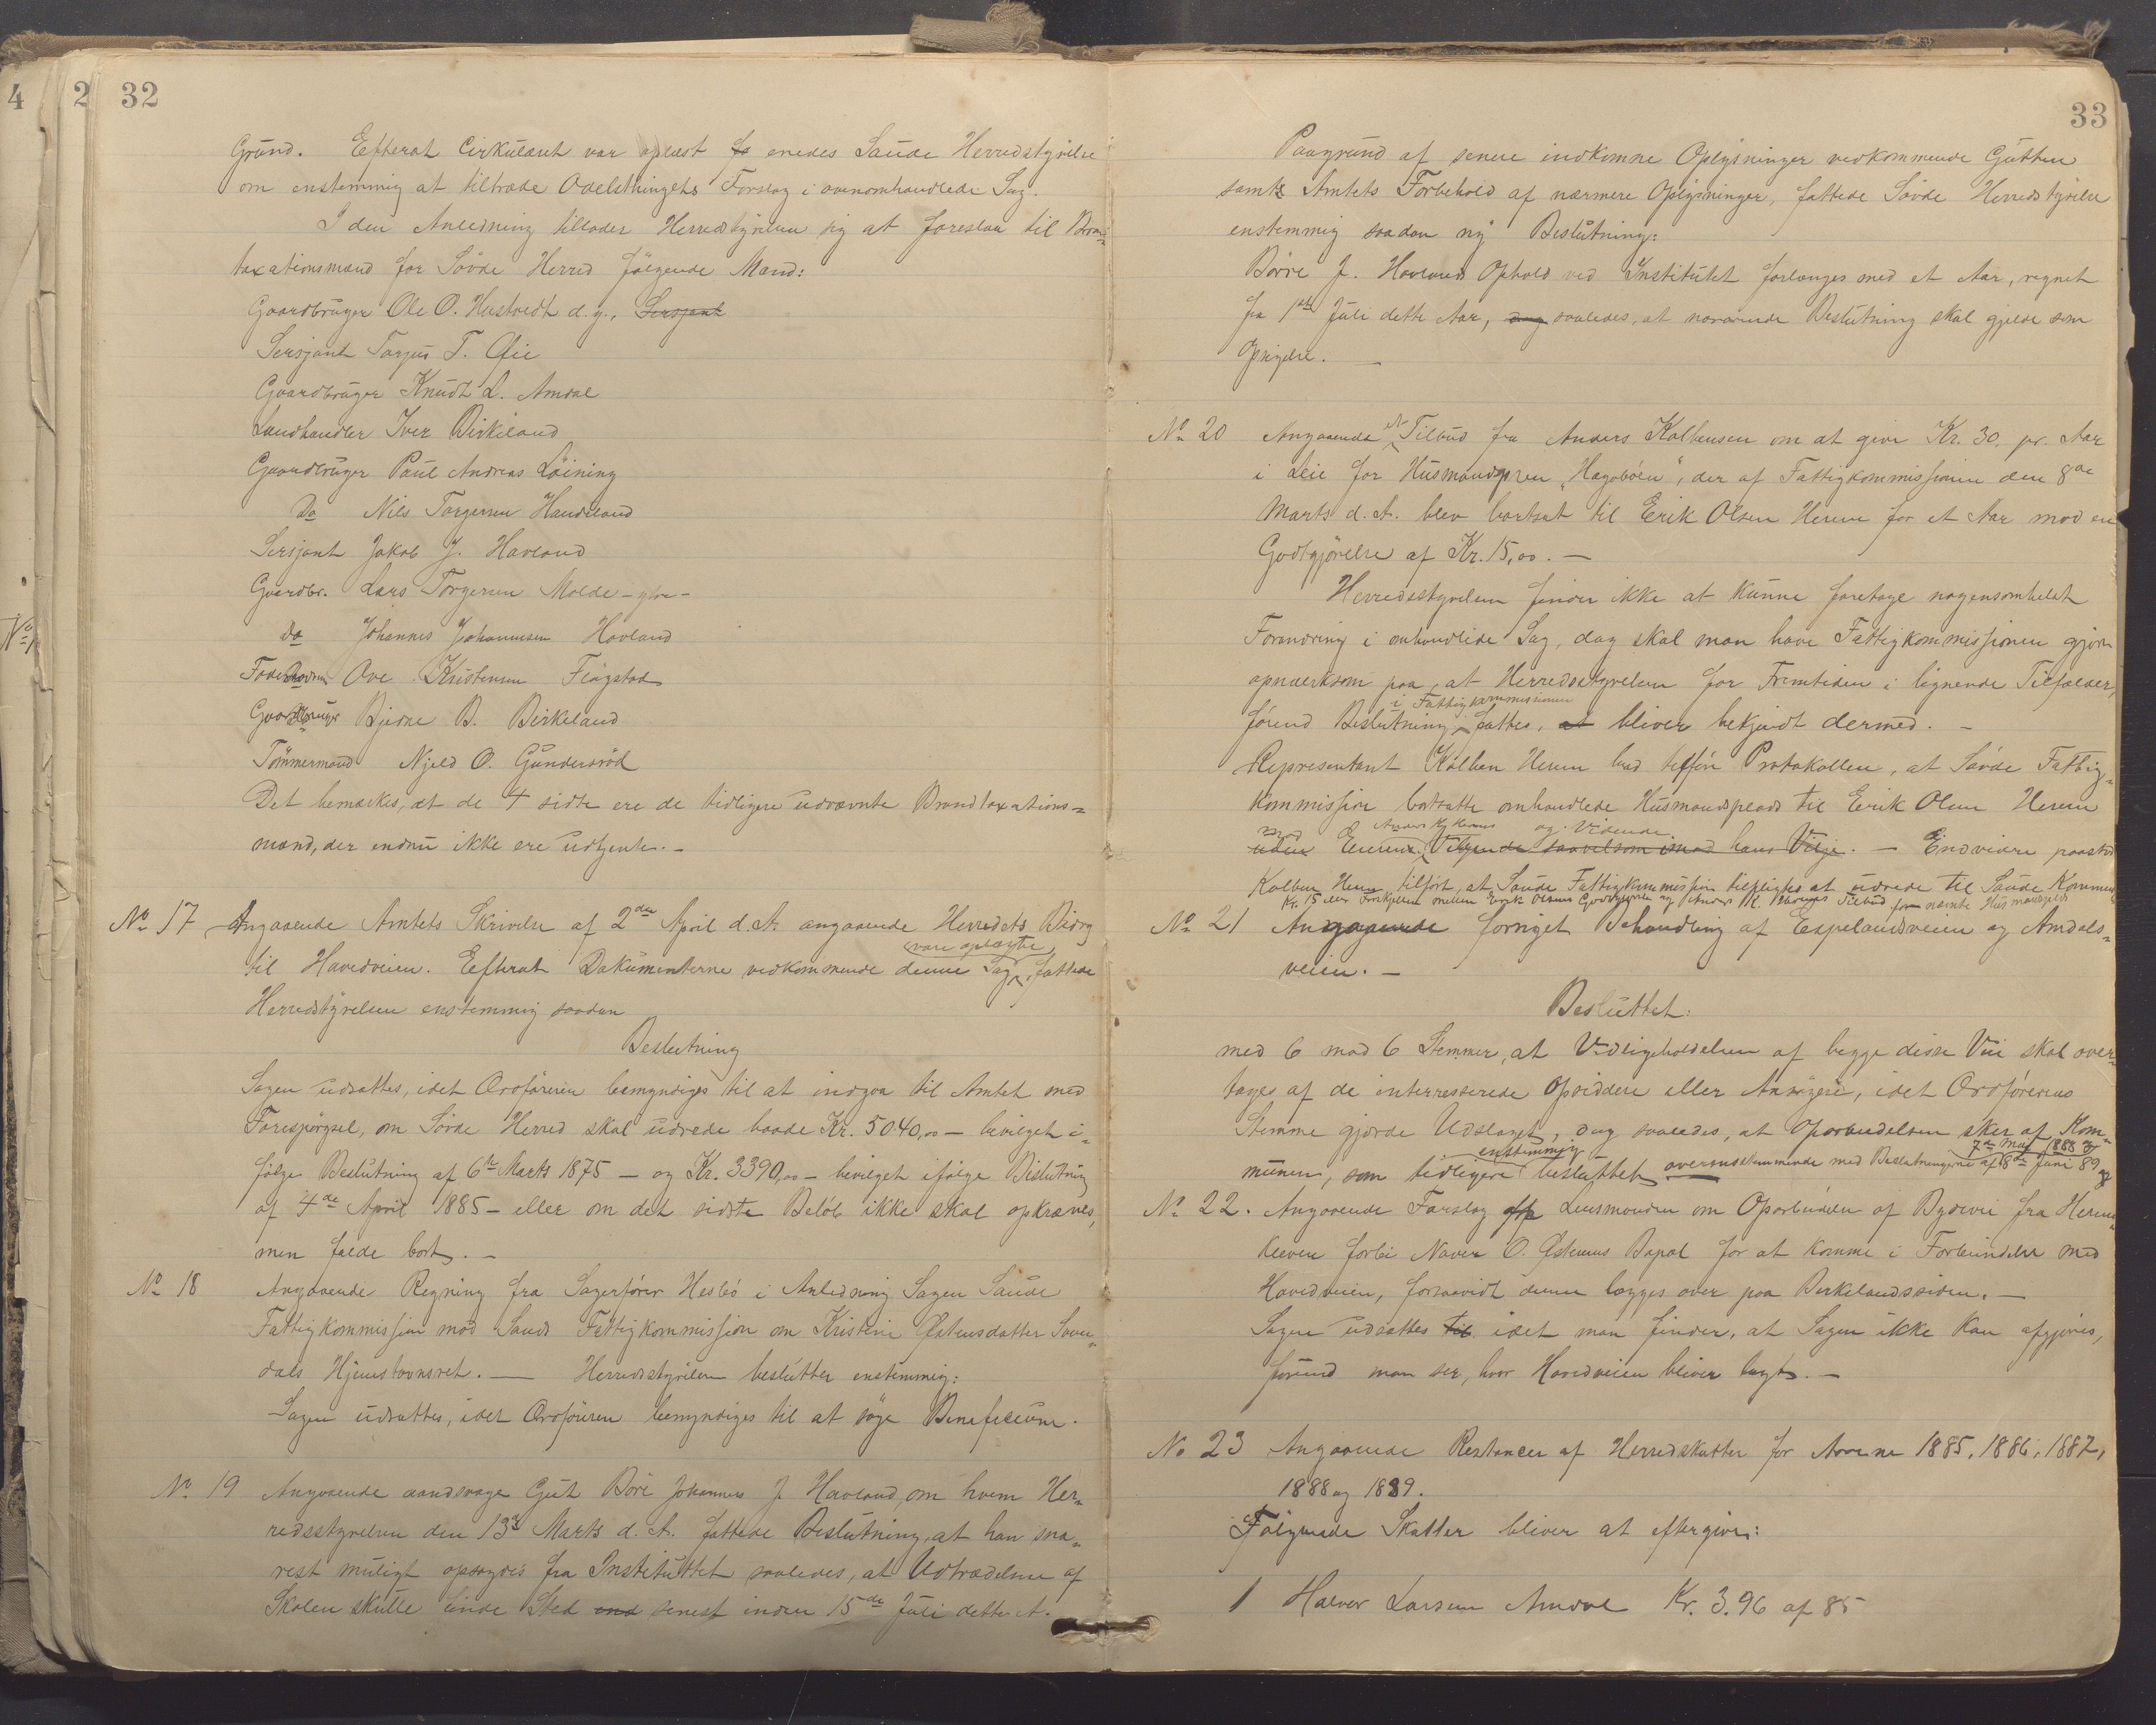 4
2
32
Grund. Efterat Cirkulæret var oplæst fa enedes Saude Herredstyrelse
om enstemmig at tiltræde Odelsthingets Forslag i ovenomhandlede Sag.
I den Anledning tillader Herredstyrelsen sig at foreslaa til Brand-
taxationsmænd for Sövde Herred fölgende Mænd:
Gaardbruger Ole O. Hustvedt d. y., Sersjant
Sersjant Tarjus T. Øie
Gaardbruger Knudt L. Amdal
Landhandler Iver Birkeland
Gaardbruger Paul Andreas Löining
Do Nils Torgersen Handeland
Sersjant Jakob J. Havland
Gaardbr. Lars Torgersen Molde - ytre -
Do Johannes Johannesen Hovland
Ove Kristensen Flögstad
Gaardbruger Bjerne B. Birkeland
Tömmermand Njeld O. Gundersröd
Det bemærkes, at de 4 sidste ere de tidligere udnævnte Brandtaxations=
mænd, der endnu ikke ere udtjente. -
No 17 Angaaende Amtets Skrivelse af 2den April d. A. angaaende Herredets Bidrag
vare oplæste
til Hovedveien. Efterat Dokumenterne vedkommende denne Sag, fattede
Herredstyrelsen enstemmig saadan
Beslutning
Sagen udsattes, idet Ordföreren bemyndiges til at indgaa til Amtet med
Forespörgsel, om Sövde Herred skal udrede baade Kr. 5040,00 - bevilget i=
fölge Beslutning af 6te Marts 1875 - og Kr. 3390,00 - bevilget ifölge Beslutning
af 4de April 1885 - eller om det sidste Belöb ikke skal opkræves,
men falde bort. -
No 18 Angaaende Regning fra Sagförer Hesbö i Anledning Sagen Saude
Fattigkommission mod Sands Fattigkommission om Kristine Østensdatter Soven=
dals Hjemstavnsret. - Herredsstyrelsen beslutter enstemmig:
Sagen udsattes, idet Ordföreren bemyndiges til at söge Beneficium.
No 19 Angaaende aandsvage Gut Böre Johannes J. Havland, om hvem Her=
redsstyrelsen den 13de Marts d. A. fattede Beslutning, at han sna=
rest muligt opsagdes fra Instituttet saaledes, at Udtrædelsen af
Skolen skulle finde Sted end senest inden 15de Juli dette A.
33
Paagrund af senere indkomne Oplysninger vedkommende Gutten
samt Amtets Forbehold af nærmere Oplysninger, fattede Sövde Herredstyrelse
enstemmig saadan ny Beslutning:
Börre J. Havlands Ophold ved Institutet forlænges med et Aar, regnet
fra 1ste Juli dette Aar, dog saaledes, at nærværende Beslutning skal gjelde som
Opsigelse. -
No 20 Angaaende et Tilbud fra Anders Kolbensen om at give Kr. 30. pr. Aar
i Leie for Husmandspl. "Hagabóen", der af Fattigkommissionen den 8de
Marts d. A. blev bortsat til Erik Olsen Herem for et Aar mod en
Godtgjörelse af Kr. 15,00. -
Herredsstyrelsen finder ikke at kunne foretage nogensomhelst
Forandring i omhandlede Sag, dog skal man have Fattigkommissionen gjort
opmærksom paa, at Herredsstyrelsen for Fremtiden i lignende Tilfælder,
i Fattigkommissionen
förend Beslutning fattes, at bliver bekjendt dermed. -
Representant Kolben Herem lod tilföre Protokollen, at Sövde Fattig=
kommission bortsatte omhandlede Husmandsplads til Erik Olsen Herem
mod og Vidende
uden Eierens Vidende saavelsom imod hans Vilje. - Endvidere paastod
Kolben Herem tilfört, at Saude Fattigkommission tilpligtes at udrede til Saude Kommune
Kr. 15 eller Forskjellen mellem Erik Olsens Godtgjörelse og Anders K. Herems Tilbud for nævnte Husmandsplads
No 21 Angaaende fornyet Behandling af Espelandsveien og Amdals=
veien. -
Besluttet:
med 6 mod 6 Stemmer, at Vedligeholdelsen af begge disse Veie skal over=
tages af de interresserede Opsiddere eller Ansögere, idet Ordförerens
Stemme gjorde Udslaget, dog saaledes, at Oparbeidelsen sker af Kom=
enstemmig 7de Maj 1888 og
munen, som tidligere besluttet overensstemmende med Beslutningerne af 8de Juni 89.
No 22. Angaaende Forslag fra Lensmanden om Oparbeidelse af Bygdevei fra Herems=
kleven forbi Naver O. Østenes Bopæl for at komme i Forbindelse med
Hovedveien, forsaavidt denne lægges over paa Birkelandssiden. -
Sagen udsættes til idet man finder, at Sagen ikke kan afgjöres,
förend man ser, hvor Hovedveien bliver lagt. -
No 23 Angaaende Restancer af Herredskatter for Aarene 1885, 1886, 1887,
1888 og 1889.
Fölgende Skatter bliver at eftergives:
1 Halvor Larsen Amdal Kr. 3.96 af 85